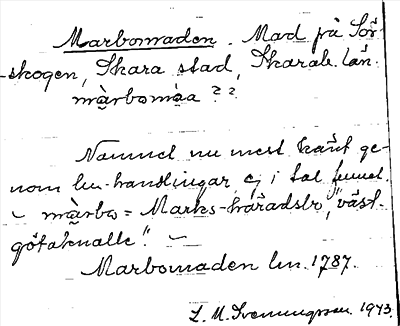 Marbomaden. Mad på Sör-
skogen, Skara stad, Skarab. län.
màrbomàa ??
Namnet nu mest känt ge-
nom lm-handlingar, ej i tal funnet.
~ màrbo = Marks-häradsbo, "väst-
götaknalle". ~
Marbomaden lm. 1787.
L. M. Svenungsson 1943.